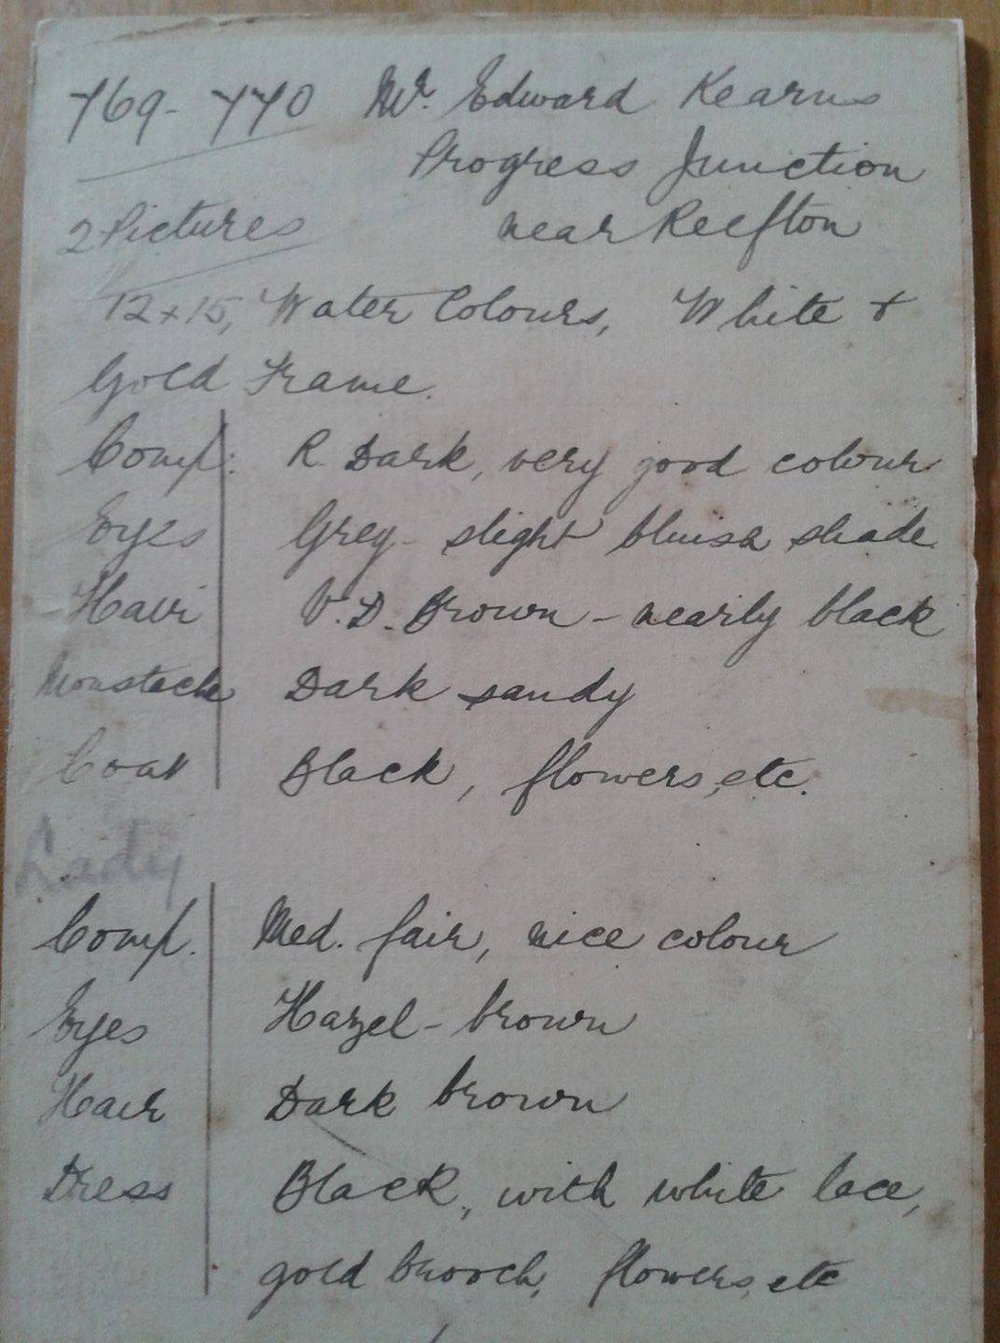 769-770 Mr. Edward Kearns
Progress Junction
2 Pictures near Reefton
12x15, Water Colours, White &
Gold Frame.
Comp: R. Dark, very good colour
Eyes Grey - slight bluish shade
Hair V.D. Brown - nearly black
Moustache Dark sandy
Coat Black, flowers, etc.
Lady
Comp. Med. fair, nice colour
Eyes Hazel - brown
Hair Dark brown
Dress Black, with white lace,
gold brooch, flowers, etc